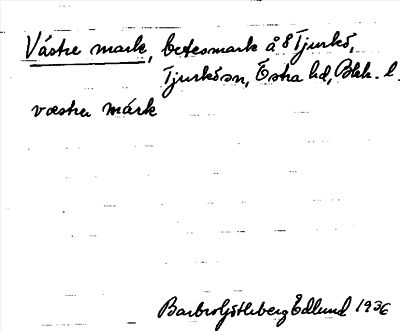 Västre mark, betesmark å 8 Tjurkö,
Tjurkö sn, Östra hd, Blek. l.
væstrə márk
Barbro Götherberg Edlund 1936